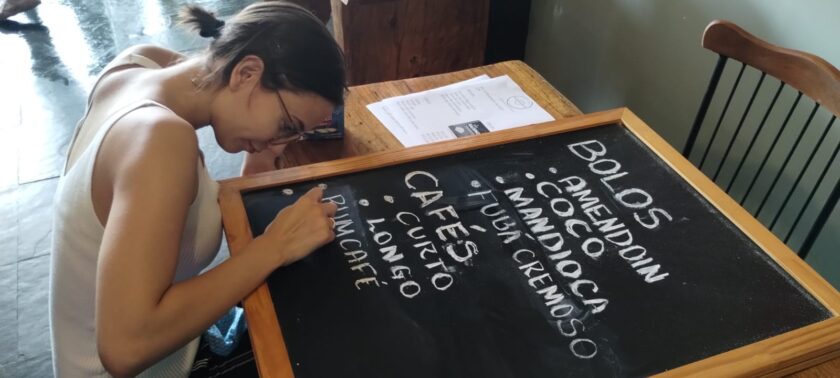 BOLOS
• AMENDOIN
• COCO
• MANDIOCA
• FUBA CREMOSO
CAFÉS
• CURTO
• LONGO
• RUMCAFÉ